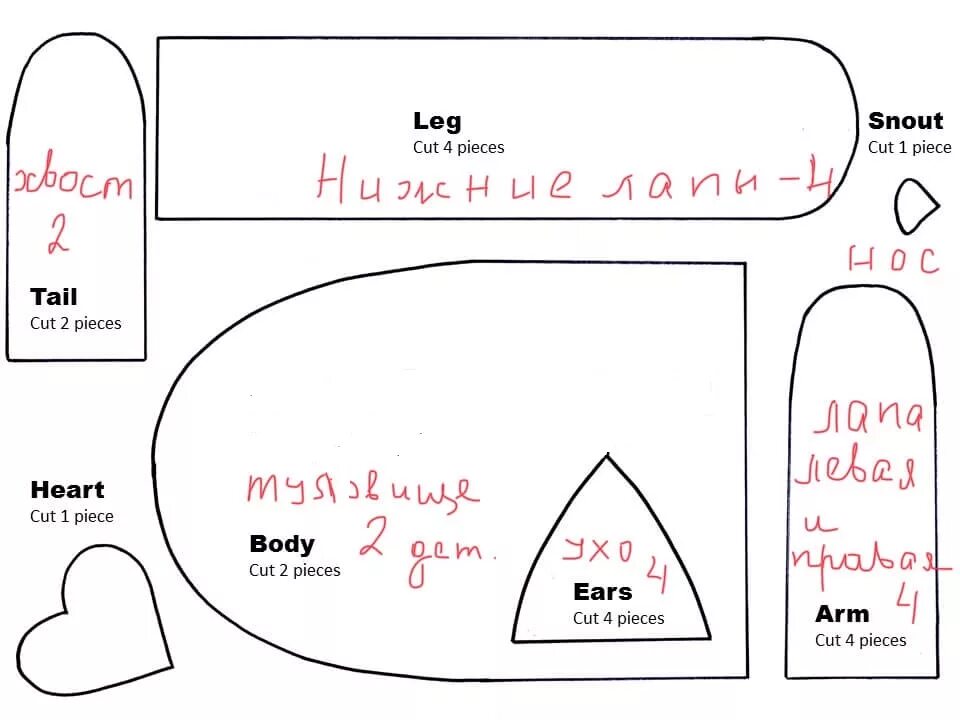 Leg
Cut 4 pieces
Нижние лапы - 4
Snout
Cut 1 piece
нос
хвост
2
Tail
Cut 2 pieces
Heart
Cut 1 piece
туловище
2 дет.
Body
Cut 2 pieces
ухо 4
Ears
Cut 4 pieces
лапа
левая
и
правая
4
Arm
Cut 4 pieces